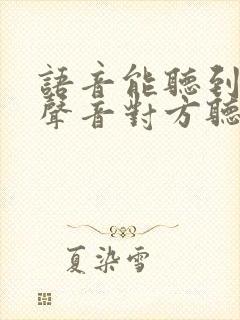 語音能聽到
聲音對方聽
夏染雪